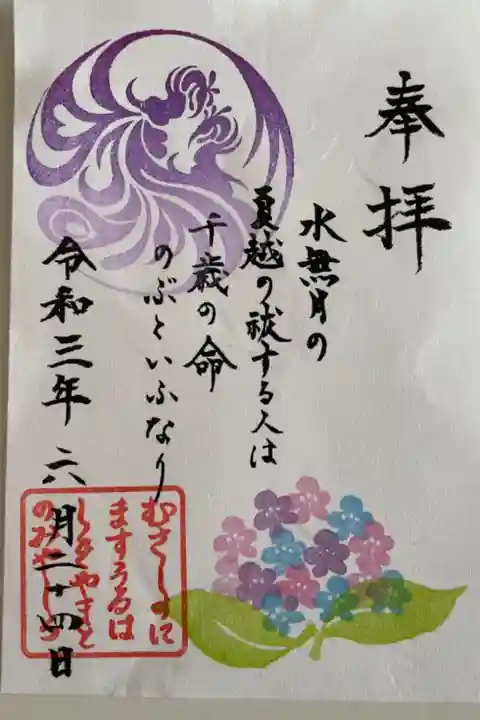 奉拝
水無月の
夏越の祓する人は
千歳の命
のぶといふなり
令和三年六月二十四日
むさしのに
ますうるは
しきやまと
のみやしろ